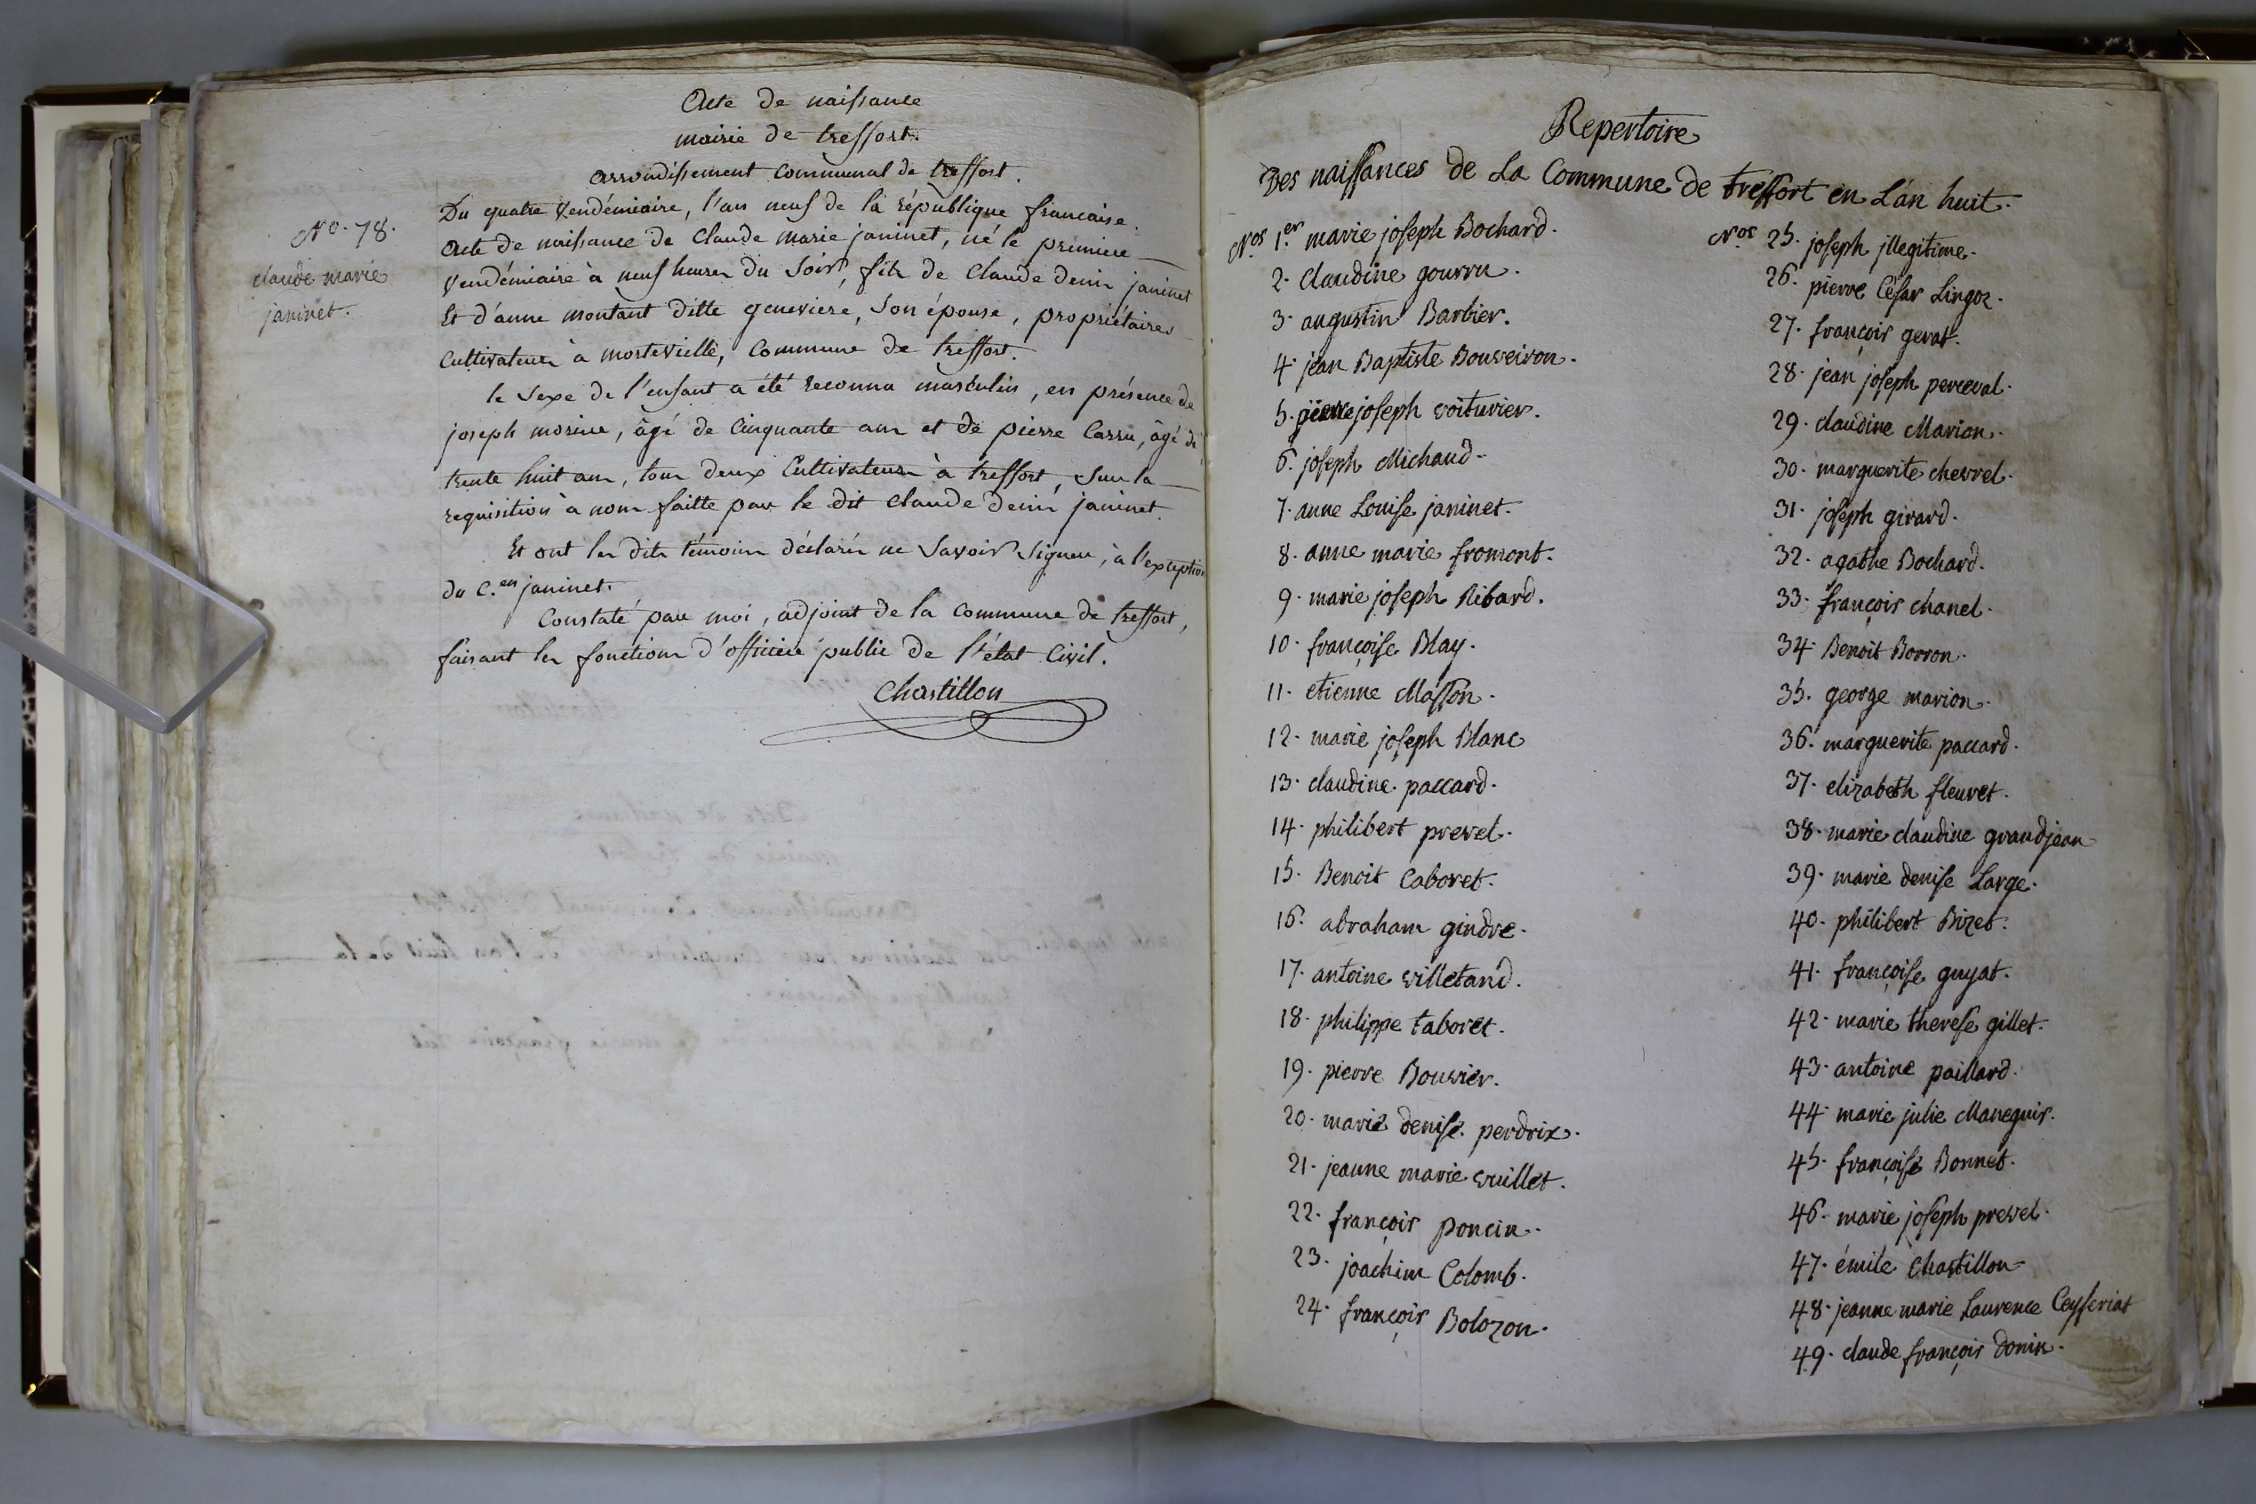 Acte de naissance
mairie de treffort.
arrondissement communal de treffort.
No. 78.
claude marie
janinet.
Du quatre vendémiaire, l'an neuf de la république francaise.
acte de naissance de Claude marie janinet, né le premier
vendémiaire à neuf heures du soir, fils de Claude denis janinet
Et d'anne montant ditte genevieve, son épouse, propriétaires
cultivateurs à mortevielle, commune de treffort.
le sexe de l'enfant a été reconnu masculin, en présence de
joseph morine, âgé de Cinquante ans et de pierre Carru, âgé de
trente huit ans, tous deux Cultivateurs à treffort, sur la
requisition à nous faitte par le dit claude denis janinet.
Et ont les dits témoins déclarés ne savoir signer, à l'exception
du C.en janinet.
Constaté par moi, adjoint de la commune de treffort,
faisant les fonctions d'officier public de l'état Civil.
Chastillon
Repertoire
Des naissances de La Commune de treffort en L'an huit.
Nos 1.er marie joseph Bochard.
2. Claudine gourru.
3. augustin Barbier.
4. jean Baptiste Bouveiron.
5. pierre joseph voiturier.
6. joseph Michaud.
7. anne Louise janinet.
8. anne marie fromont.
9. marie joseph Ribard.
10. françoise Blay.
11. etienne Masson.
12. marie joseph Blanc
13. claudine paccard.
14. philibert prevel.
15. Benoit Caboret.
16. abraham gindre.
17. antoine villetand.
18. philippe taboret.
19. pierre Bouvier.
20. marie denise perdrix.
21. jeanne marie vuillet.
22. françois poncin.
23. joachim Colomb.
24. françois Bolozon.
Nos 25. joseph jllegitime.
26. pierre César Lingoz.
27. françois gerat.
28. jean joseph perceval.
29. claudine Marion.
30. marguerite chevrel.
31. joseph girard.
32. agathe Bochard.
33. françois chanel.
34. Benoit Borron.
35. george marion.
36. marguerite paccard.
37. elizabeth fleuret.
38. marie claudine grandjean
39. marie denise Large.
40. philibert Bizet.
41. françoise guyat.
42. marie therese gillet.
43. antoine paillard.
44. marie julie Maneguis.
45. françoise Bonnet.
46. marie joseph prevel.
47. émile Chastillon
48. jeanne marie Laurence Ceyseriat
49. claude françois donin.